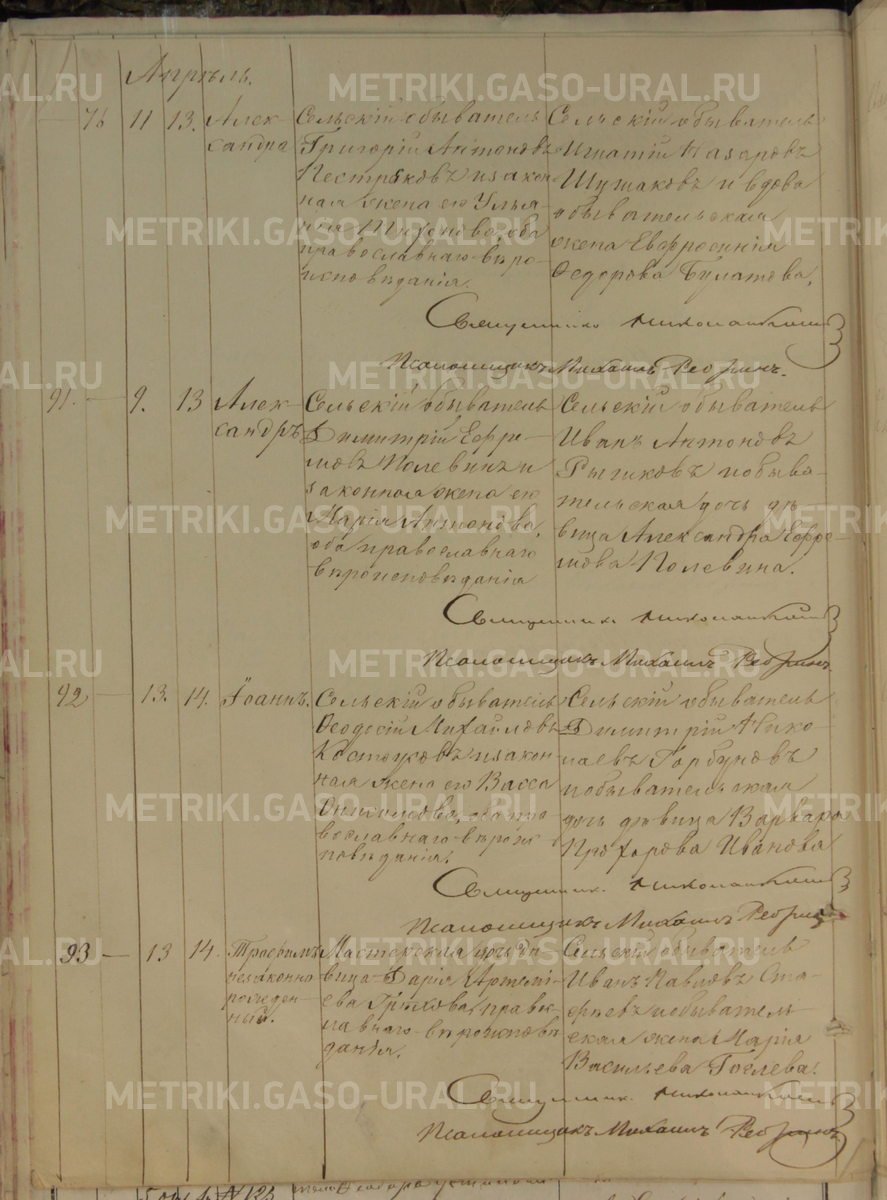 Апрѣль.
76 11 13. Алек-
сандра
Сельскій обыватель
Григорій Антоновъ
Пестряковъ и закон
ная жена его Улья-
на, оба
православнаго вѣро-
исповѣданія.
Сельскій обыватель
Игнатій Назаровъ
Шушаковъ и вдова
обывательская
жена Евфросинія
Ѳедорова Булатова.
Священникъ
Псаломщикъ Михаилъ
91. 9. 13 Алек-
сандръ
Сельскій обыватель
Димитрій Ефре-
мовъ Полевинъ и
законная жена его
Марія Антонова,
оба православнаго
вѣроисповѣданія
Сельскій обыватель
Иванъ Антоновъ
Рычковъ и обыва-
тельская дочь дѣ-
вица Александра Ефре-
мова Полевина.
Священникъ
Псаломщикъ Михаилъ
92 13. 14. Іоаннъ.
Сельскій обыватель
Ѳеодосій Михайловъ
Костоусовъ и закон
ная жена его Васса
оба пра
вославнаго вѣроис
повѣданія.
Сельскій обыватель
Димитрій Нико-
лаевъ Горбуновъ
и обывательская
дочь дѣвица Варвара
Прохорова Иванова
Священникъ
Псаломщикъ Михаилъ
93 13 14. Трофимъ
незаконно
рожден-
ный.
Мастерская дѣ
вица Дарія Артемі-
ева Грѣхова, правос
лавнаго вѣроисповѣ
данія.
Сельскій обыватель
Иванъ Павловъ Ста-
рцевъ и обыватель-
ская жена Марія
Васильева Гоглева.
Священникъ
Псаломщикъ Михаилъ
№ 123
METRIKI.GASO-URAL.RU